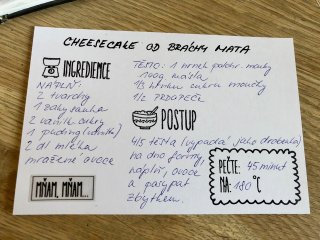 CHEESECAKE OD BRÁCHY MATA
INGREDIENCE
NÁPLŇ:
2 tvarohy
1 zakysanka
2 vanilk. cukry
1 puding (vanilk.)
2 dl mléka
mražené ovoce
MŇAM, MŇAM...
TĚSTO: 1 hrnek polohr. mouky
100g másla
1/3 hrnku cukru moučky
1/2 PRDOPEČE
POSTUP
4/5 těsta (vypadá jako drobenka)
na dno formy,
náplň, ovoce
a zasypat
zbytkem.
PEČTE: 45 minut
NA: 180 °C